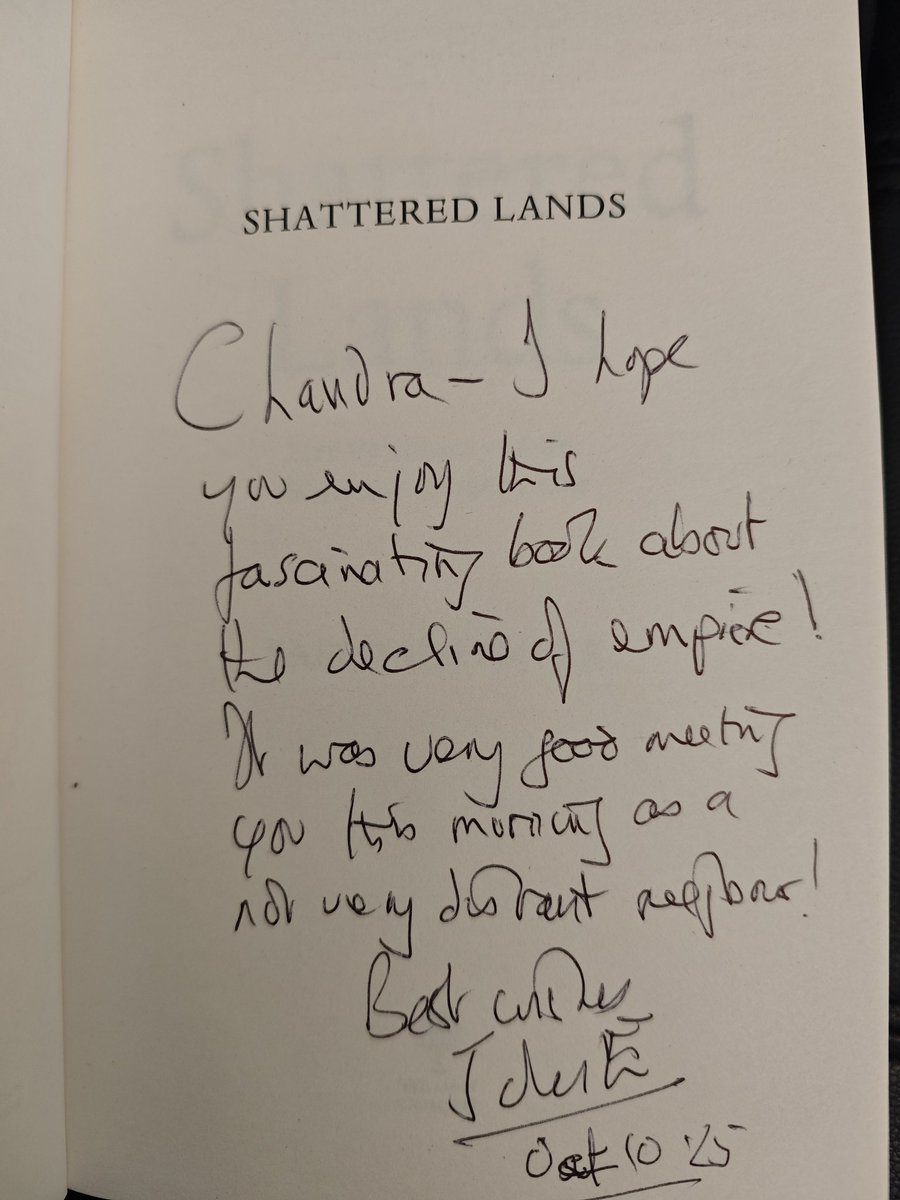 SHATTERED LANDS
Chandra – I hope
you enjoy this
fascinating book about
the decline of empire!
It was very good meeting
you this morning as a
not very distant neighbour!
Best wishes
Oct 10 25